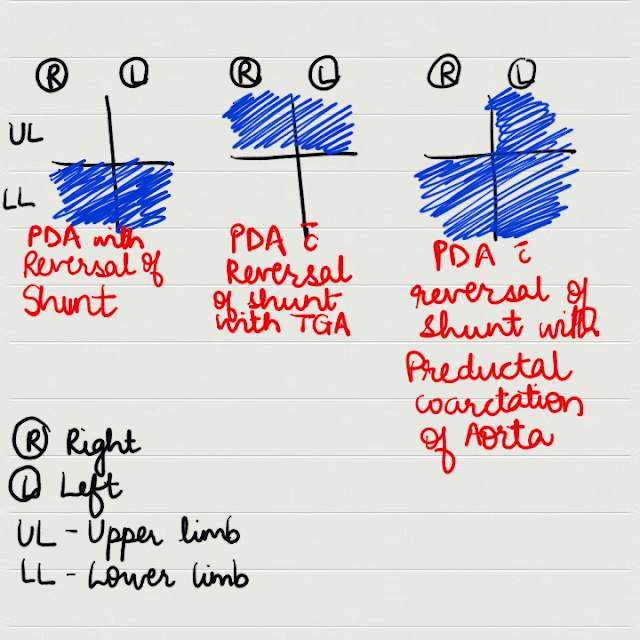 R L R L R L
UL
LL
PDA with
Reversal of
Shunt
PDA c̄
Reversal
of shunt
with TGA
PDA c̄
reversal of
shunt with
Preductal
coarctation
of Aorta
R Right
L Left
UL - Upper limb
LL - Lower limb